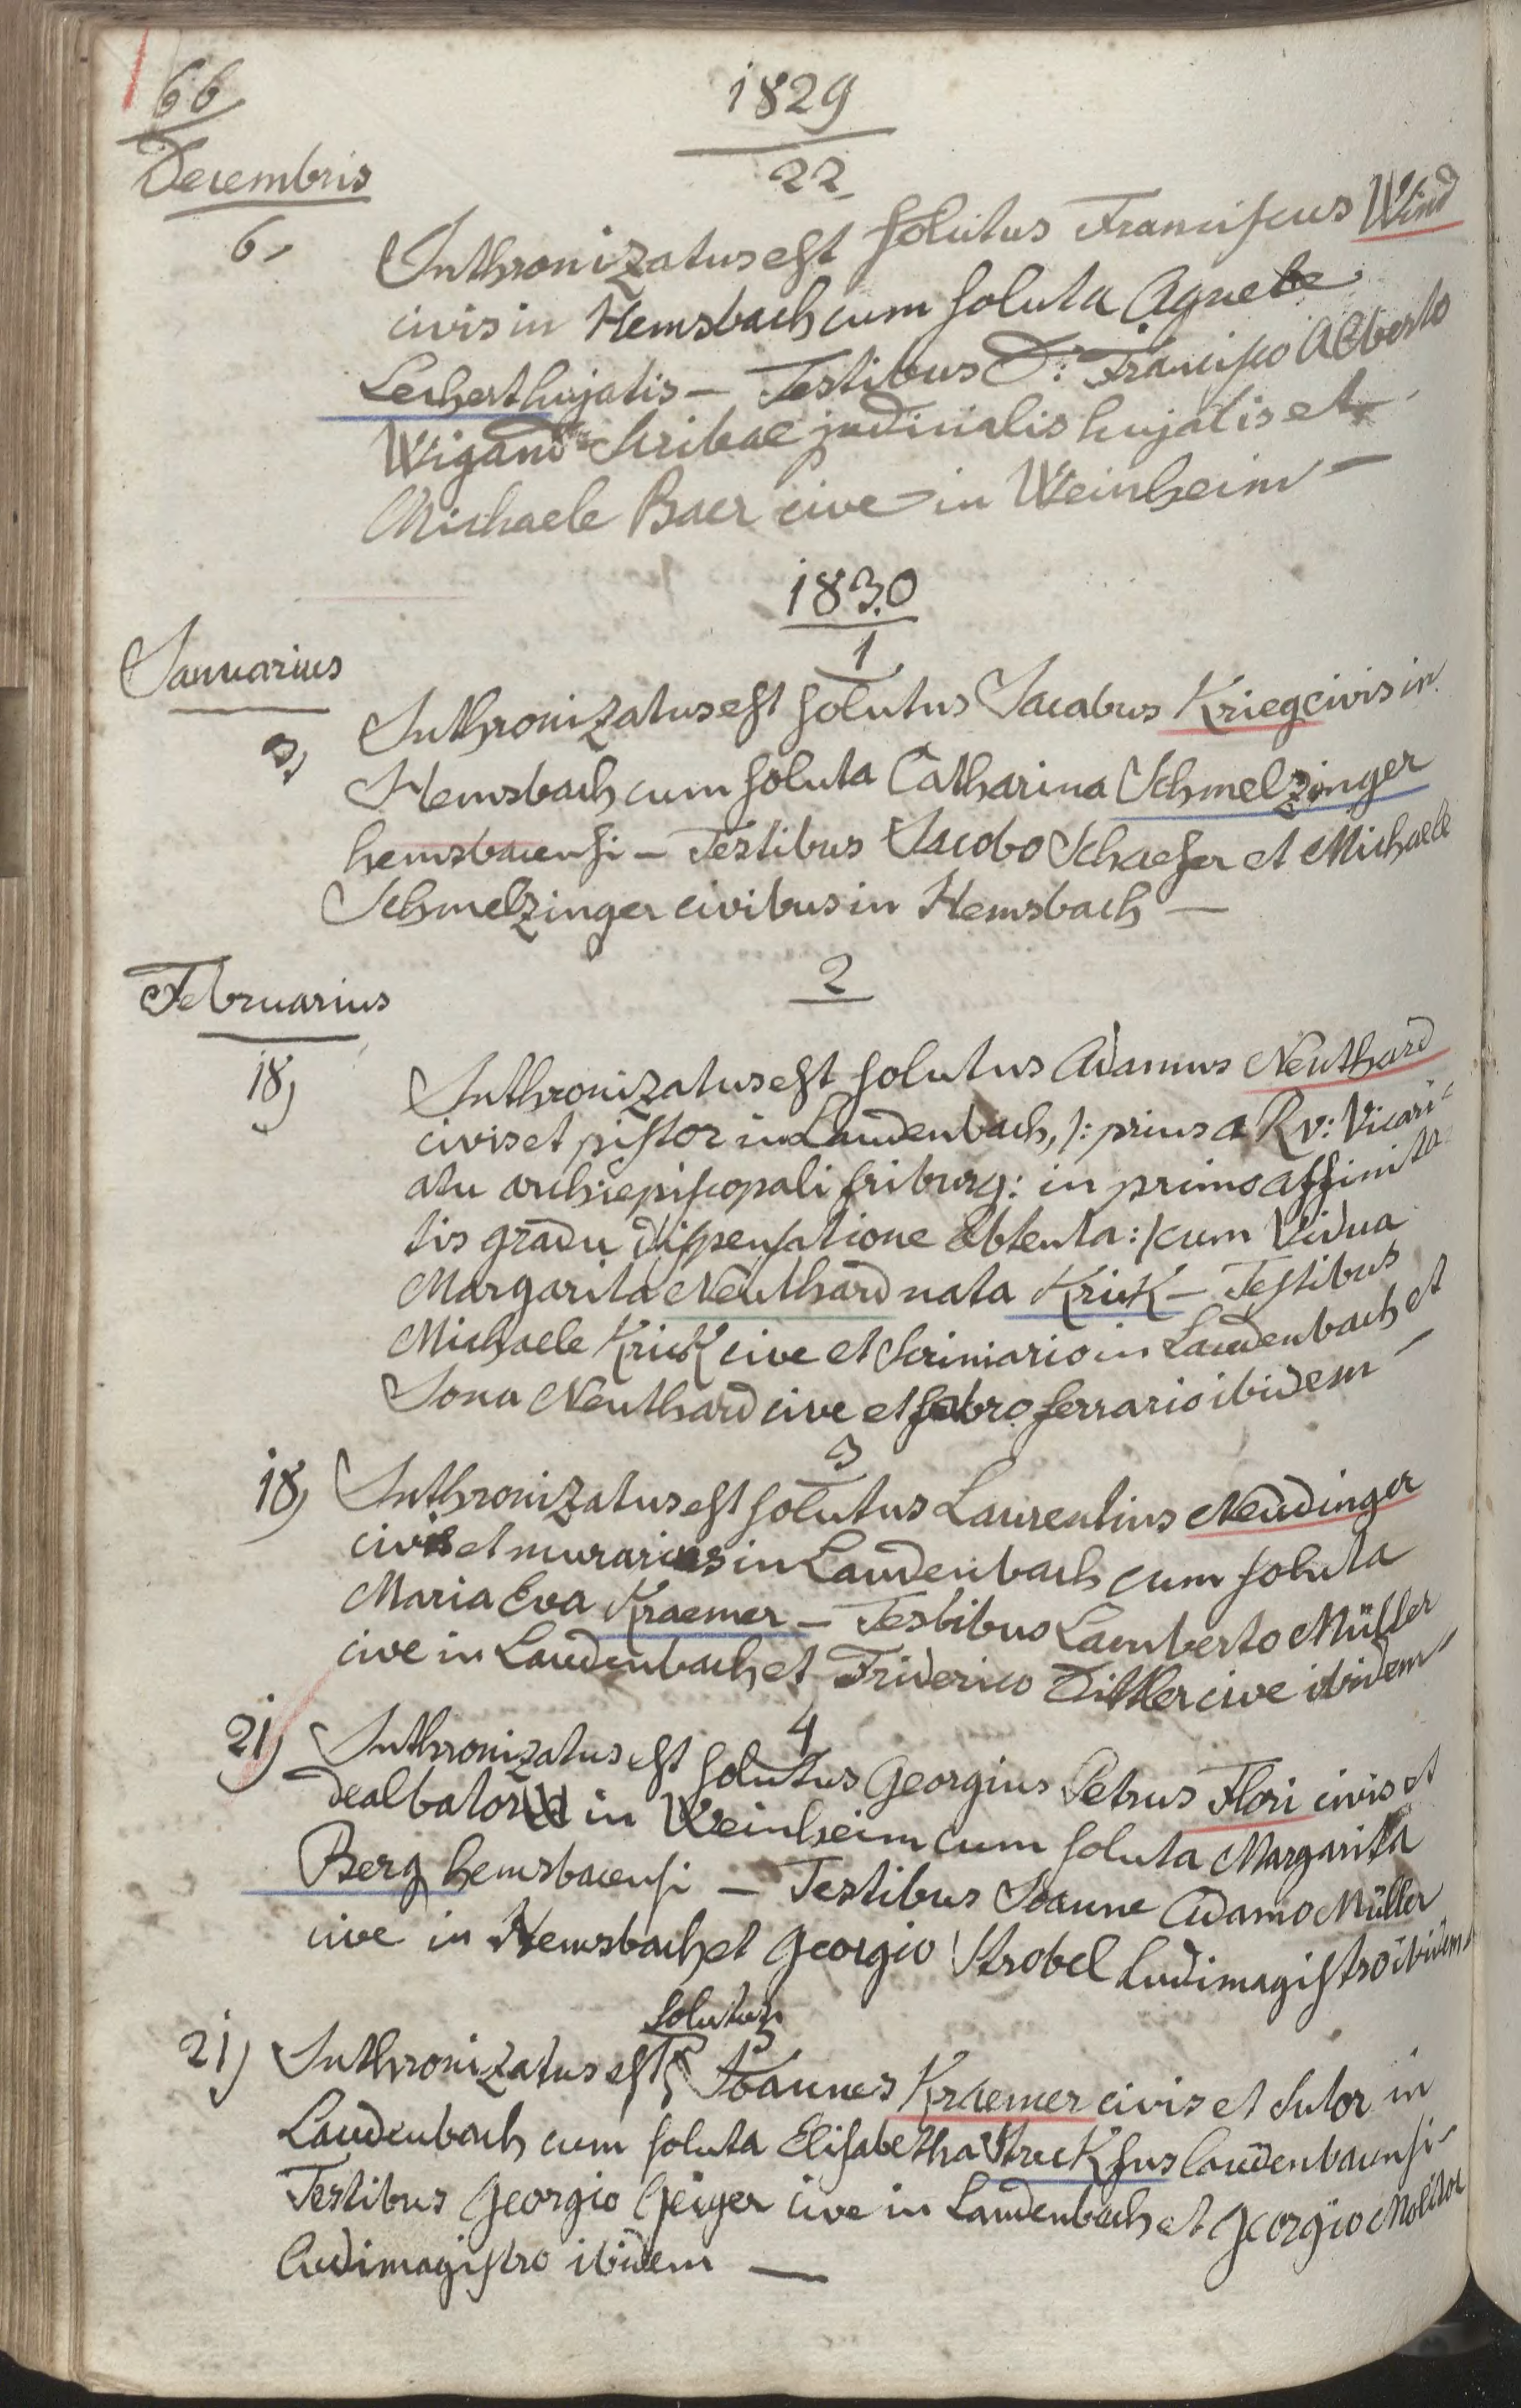 66
1829
Decembris
22
6, Inthronizatus est solutus Franciscus Wind
civis in Hemsbach cum soluta Agnete
Lechert hujatis – Testibus D: Francisco Alberto
Wigand Scribae judicialis hujatis et
Michaele Baer cive in Weinheim –
1830
Januarius
1
3, Inthronizatus est solutus Jacobus Krieg civis in
Hemsbach cum soluta Catharina Schmelzinger
hemsbacensi – Testibus Jacobo Schaefer et Michaele
Schmelzinger civibus in Hemsbach –
Februarius
2
18, Inthronizatus est solutus Adamus Neuthard
civis et pistor in Laudenbach, /: prius a Rv: Vicari-
atu archiepiscopali friburg: in primo affinita-
tis gradu dispensatione obtenta :/ cum Vidua
Margarita Neuthard nata Krick – Testibus
Michaele Krick cive et Scriniario in Laudenbach et
Jona Neuthard cive et fabro ferrario ibidem –
3
18, Inthronizatus est solutus Laurentius Neudinger
civis et murarius in Laudenbach cum soluta
Maria Eva Kraemer – Testibus Lamberto Müller
cive in Laudenbach et Friderico cive ibidem –
4
21, Inthronizatus est solutus Georgius Petrus Flori civis et
dealbator in Weinheim cum soluta Margarita
Berg hemsbacensi – Testibus Joanne Adamo Müller
cive in Hemsbach et Georgio Strobel Ludimagistro ibidem
solutus
5
21, Inthronizatus est Joannes Kraemer civis et Sutor in
Laudenbach cum soluta Elisabetha Struckfus laudenbacensi –
Testibus Georgio Geiger cive in Laudenbach et Georgio Molitor
Ludimagistro ibidem –